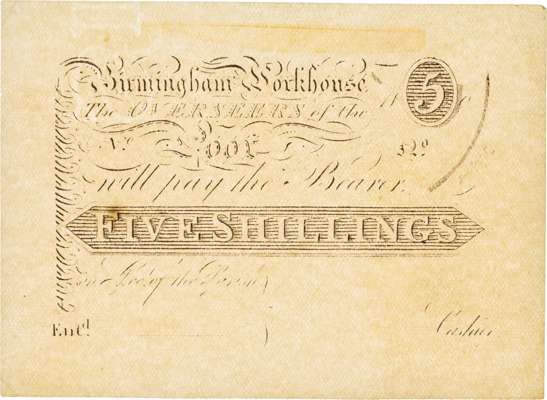 Birmingham Workhouse
5
The OVERSEERS of the
No. Poor No.
will pay the Bearer
FIVE SHILLINGS
of the Parish
Ent.d
Cashier